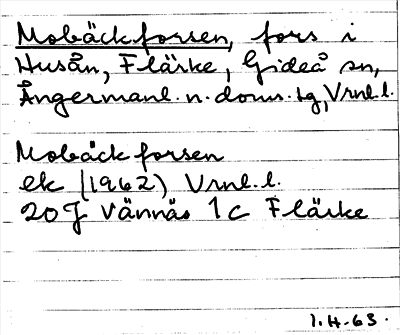 Mobäckforsen, fors i
Husån, Flärke, Gideå sn,
Ångermanl. n. doms. tg, Vrnl. l.
Mobäckforsen
ek (1962) Vrnl. l.
20J Vännäs 1c Flärke
1.4.63.